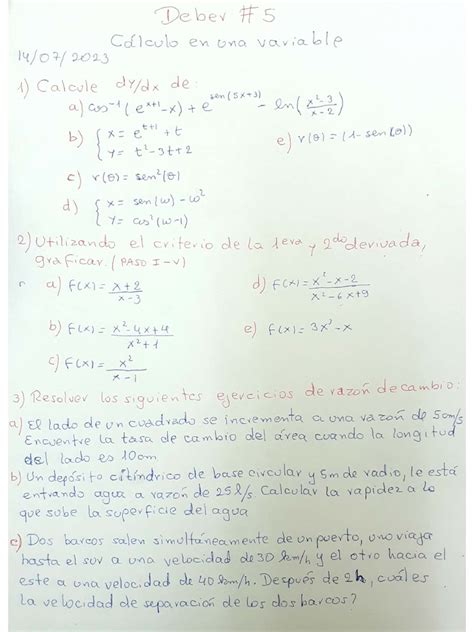 Deber #5
Cálculo en una variable
14/07/2023
1) Calcule dy/dx de:
a) cos⁻¹(e^(x+1)-x) + e^(sen(5x+3)) - ln((x²-3)/(x-2))
b) { x = e^(t+1) + t
y = t²-3t+2
e) r(θ) = (1-sen(θ))
c) r(θ) = sen²(θ)
d) { x = sen(ω) - ω²
y = cos²(ω-1)
2) Utilizando el criterio de la 1era y 2do derivada,
graficar. (PASO I-V)
a) f(x) = (x+2)/(x-3)
d) f(x) = (x²-x-2)/(x²-6x+9)
b) f(x) = (x²-4x+4)/(x²+1)
e) f(x) = 3x³-x
c) f(x) = x²/(x-1)
3) Resolver los siguientes ejercicios de razón de cambio:
a) El lado de un cuadrado se incrementa a una razón de 5cm/s
Encuentre la tasa de cambio del área cuando la longitud
del lado es 10cm
b) Un depósito cilíndrico de base circular y 5m de radio, le está
entrando agua a razón de 25 l/s. Calcular la rapidez a lo
que sube la superficie del agua
c) Dos barcos salen simultáneamente de un puerto, uno viaja
hasta el sur a una velocidad de 30 km/h y el otro hacia el
este a una velocidad de 40 km/h. Después de 2h, cuál es
la velocidad de separación de los dos barcos?